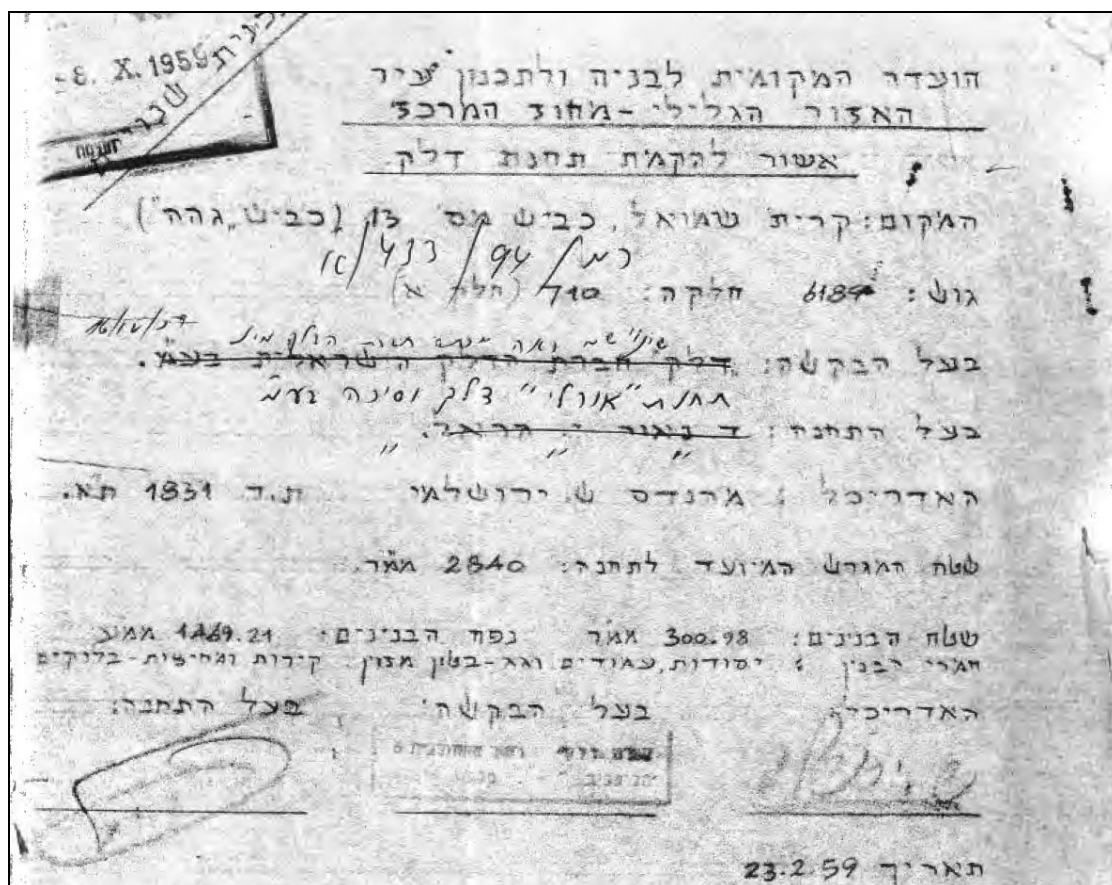 -8. X. 1959
הועדה המקומית לבניה ולתכנון עיר
האזור הגלילי - מחוז המרכז
אשור להקמת תחנת דלק
המקום: קרית שמואל, כביש מס' 13 (כביש "גהה")
גוש: 6189 חלקה: 710 (חלק א)
בעל הבקשה: "דלק" חברת הדלק הישראלית בע"מ.
תחנת "אורלי" דלק וסיכה בע"מ
בעל התחנה:
האדריכל: מהנדס ש. ירושלמי ת.ד 1831 ת"א.
שטח המגרש המיועד לתחנה: 2840 ממ"ר.
שטח הבנינים: 300.98 ממ"ר נפח הבנינים: ממ"ע
חמרי הבנין: יסודות, עמודים וגג - בטון מזוין. קירות ומחיצות - בלוקים
האדריכל: בעל הבקשה: בעל התחנה:
תאריך 23.2.59